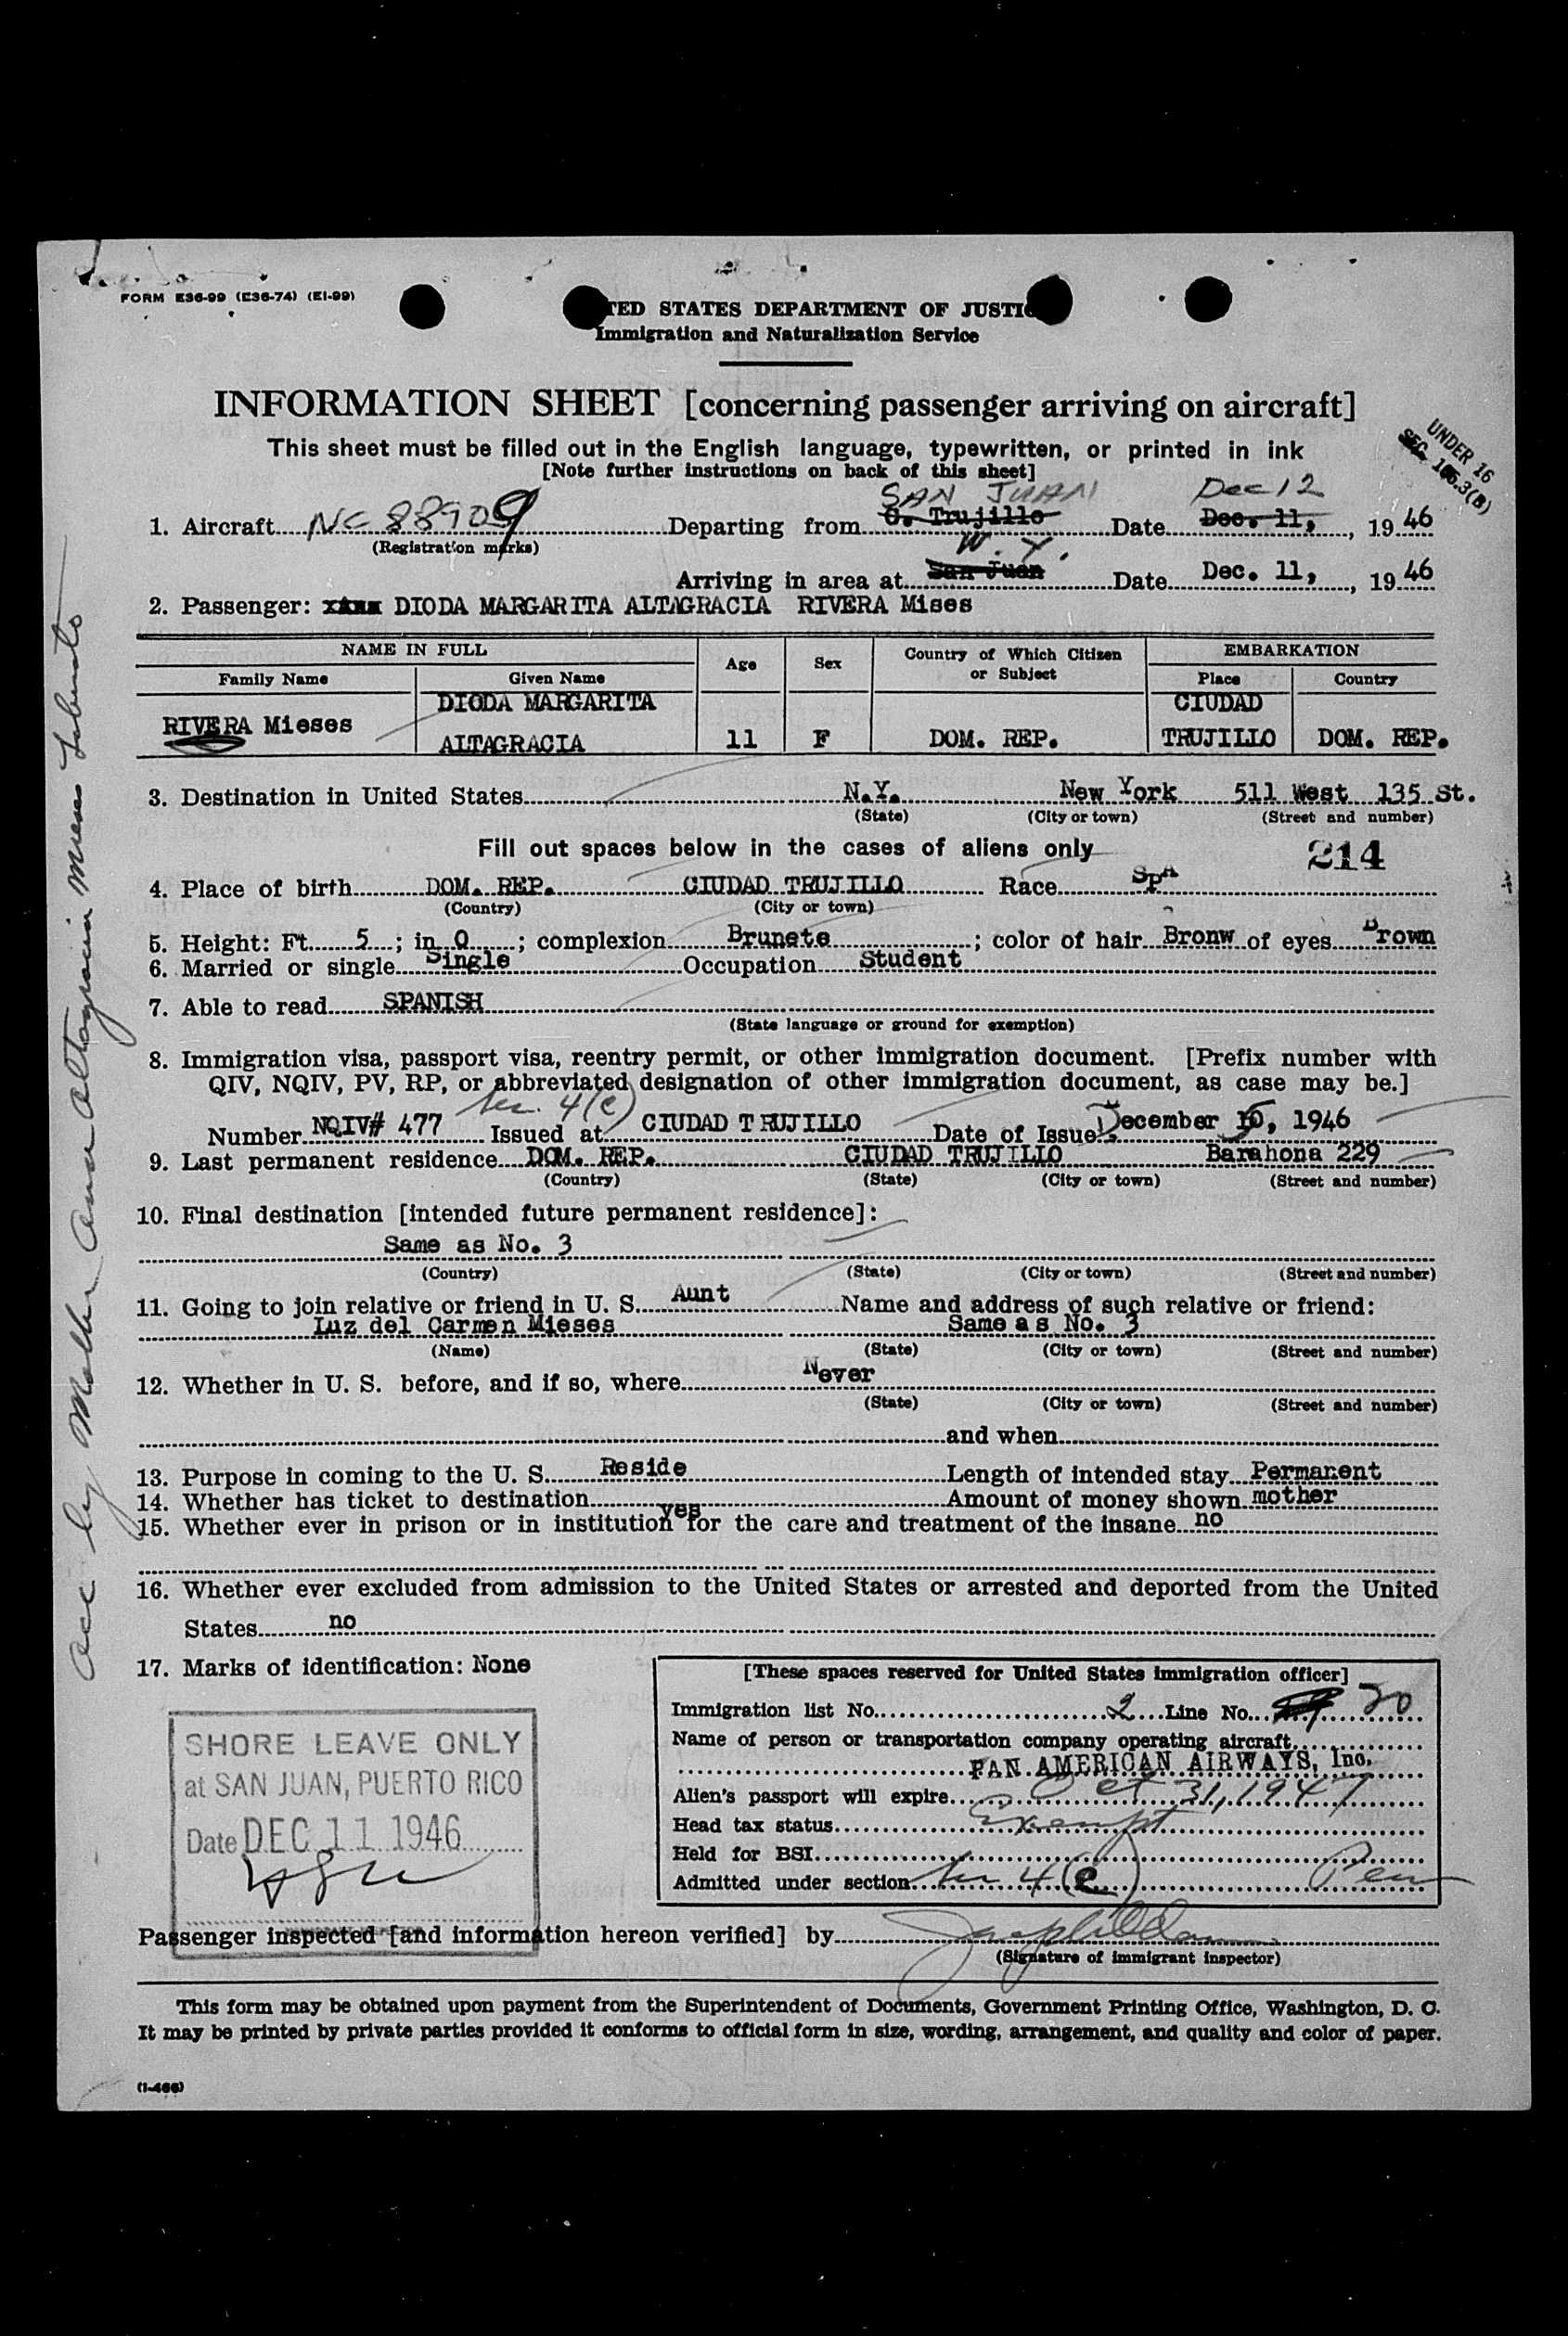 FORM E36-99 (E36-74) (EI-99)
TED STATES DEPARTMENT OF JUSTIC
Immigration and Naturalization Service
INFORMATION SHEET [concerning passenger arriving on aircraft]
This sheet must be filled out in the English language, typewritten, or printed in ink
[Note further instructions on back of this sheet]
UNDER 16
SEC. 165.3(B)
SAN JUAN Dec 12
1. Aircraft NC 88909 Departing from C. Trujillo Date Dec. 11, , 19 46
(Registration marks)
N. Y.
Arriving in area at San Juan Date Dec. 11, , 19 46
2. Passenger: DIODA MARGARITA ALTAGRACIA RIVERA Mises
NAME IN FULL Age Sex Country of Which Citizen or Subject EMBARKATION
Family Name Given Name Place Country
RIVERA Mieses DIODA MARGARITA ALTAGRACIA 11 F DOM. REP. CIUDAD TRUJILLO DOM. REP.
3. Destination in United States N.Y. New York 511 West 135 St.
(State) (City or town) (Street and number)
Fill out spaces below in the cases of aliens only 214
4. Place of birth DOM. REP. CIUDAD TRUJILLO Race SpA
(Country) (City or town)
5. Height: Ft. 5 ; in 0 ; complexion Brunete ; color of hair Bronw of eyes Brown
6. Married or single Single Occupation Student
7. Able to read SPANISH
(State language or ground for exemption)
8. Immigration visa, passport visa, reentry permit, or other immigration document. [Prefix number with
QIV, NQIV, PV, RP, or abbreviated designation of other immigration document, as case may be.]
Sec. 4(c)
Number NQIV# 477 Issued at CIUDAD TRUJILLO Date of Issue December 10, 1946
9. Last permanent residence DOM. REP. CIUDAD TRUJILLO Barahona 229
(Country) (State) (City or town) (Street and number)
10. Final destination [intended future permanent residence]:
Same as No. 3
(Country) (State) (City or town) (Street and number)
11. Going to join relative or friend in U. S. Aunt Name and address of such relative or friend:
Luz del Carmen Mieses Same as No. 3
(Name) (State) (City or town) (Street and number)
12. Whether in U. S. before, and if so, where Never
(State) (City or town) (Street and number)
and when
13. Purpose in coming to the U. S. Reside Length of intended stay Permanent
14. Whether has ticket to destination yes Amount of money shown mother
15. Whether ever in prison or in institution for the care and treatment of the insane no
16. Whether ever excluded from admission to the United States or arrested and deported from the United
States no
17. Marks of identification: None
[These spaces reserved for United States immigration officer]
Immigration list No. 2 Line No. 20
Name of person or transportation company operating aircraft
PAN AMERICAN AIRWAYS, Inc.
Alien's passport will expire Oct 31, 1947
Head tax status Exempt
Held for BSI
Admitted under section Sec 4(c)
SHORE LEAVE ONLY
at SAN JUAN, PUERTO RICO
Date DEC 11 1946
Passenger inspected [and information hereon verified] by
(Signature of immigrant inspector)
This form may be obtained upon payment from the Superintendent of Documents, Government Printing Office, Washington, D. C.
It may be printed by private parties provided it conforms to official form in size, wording, arrangement, and quality and color of paper.
(1-466)
Acc by Mother Ana Altagracia Mieses